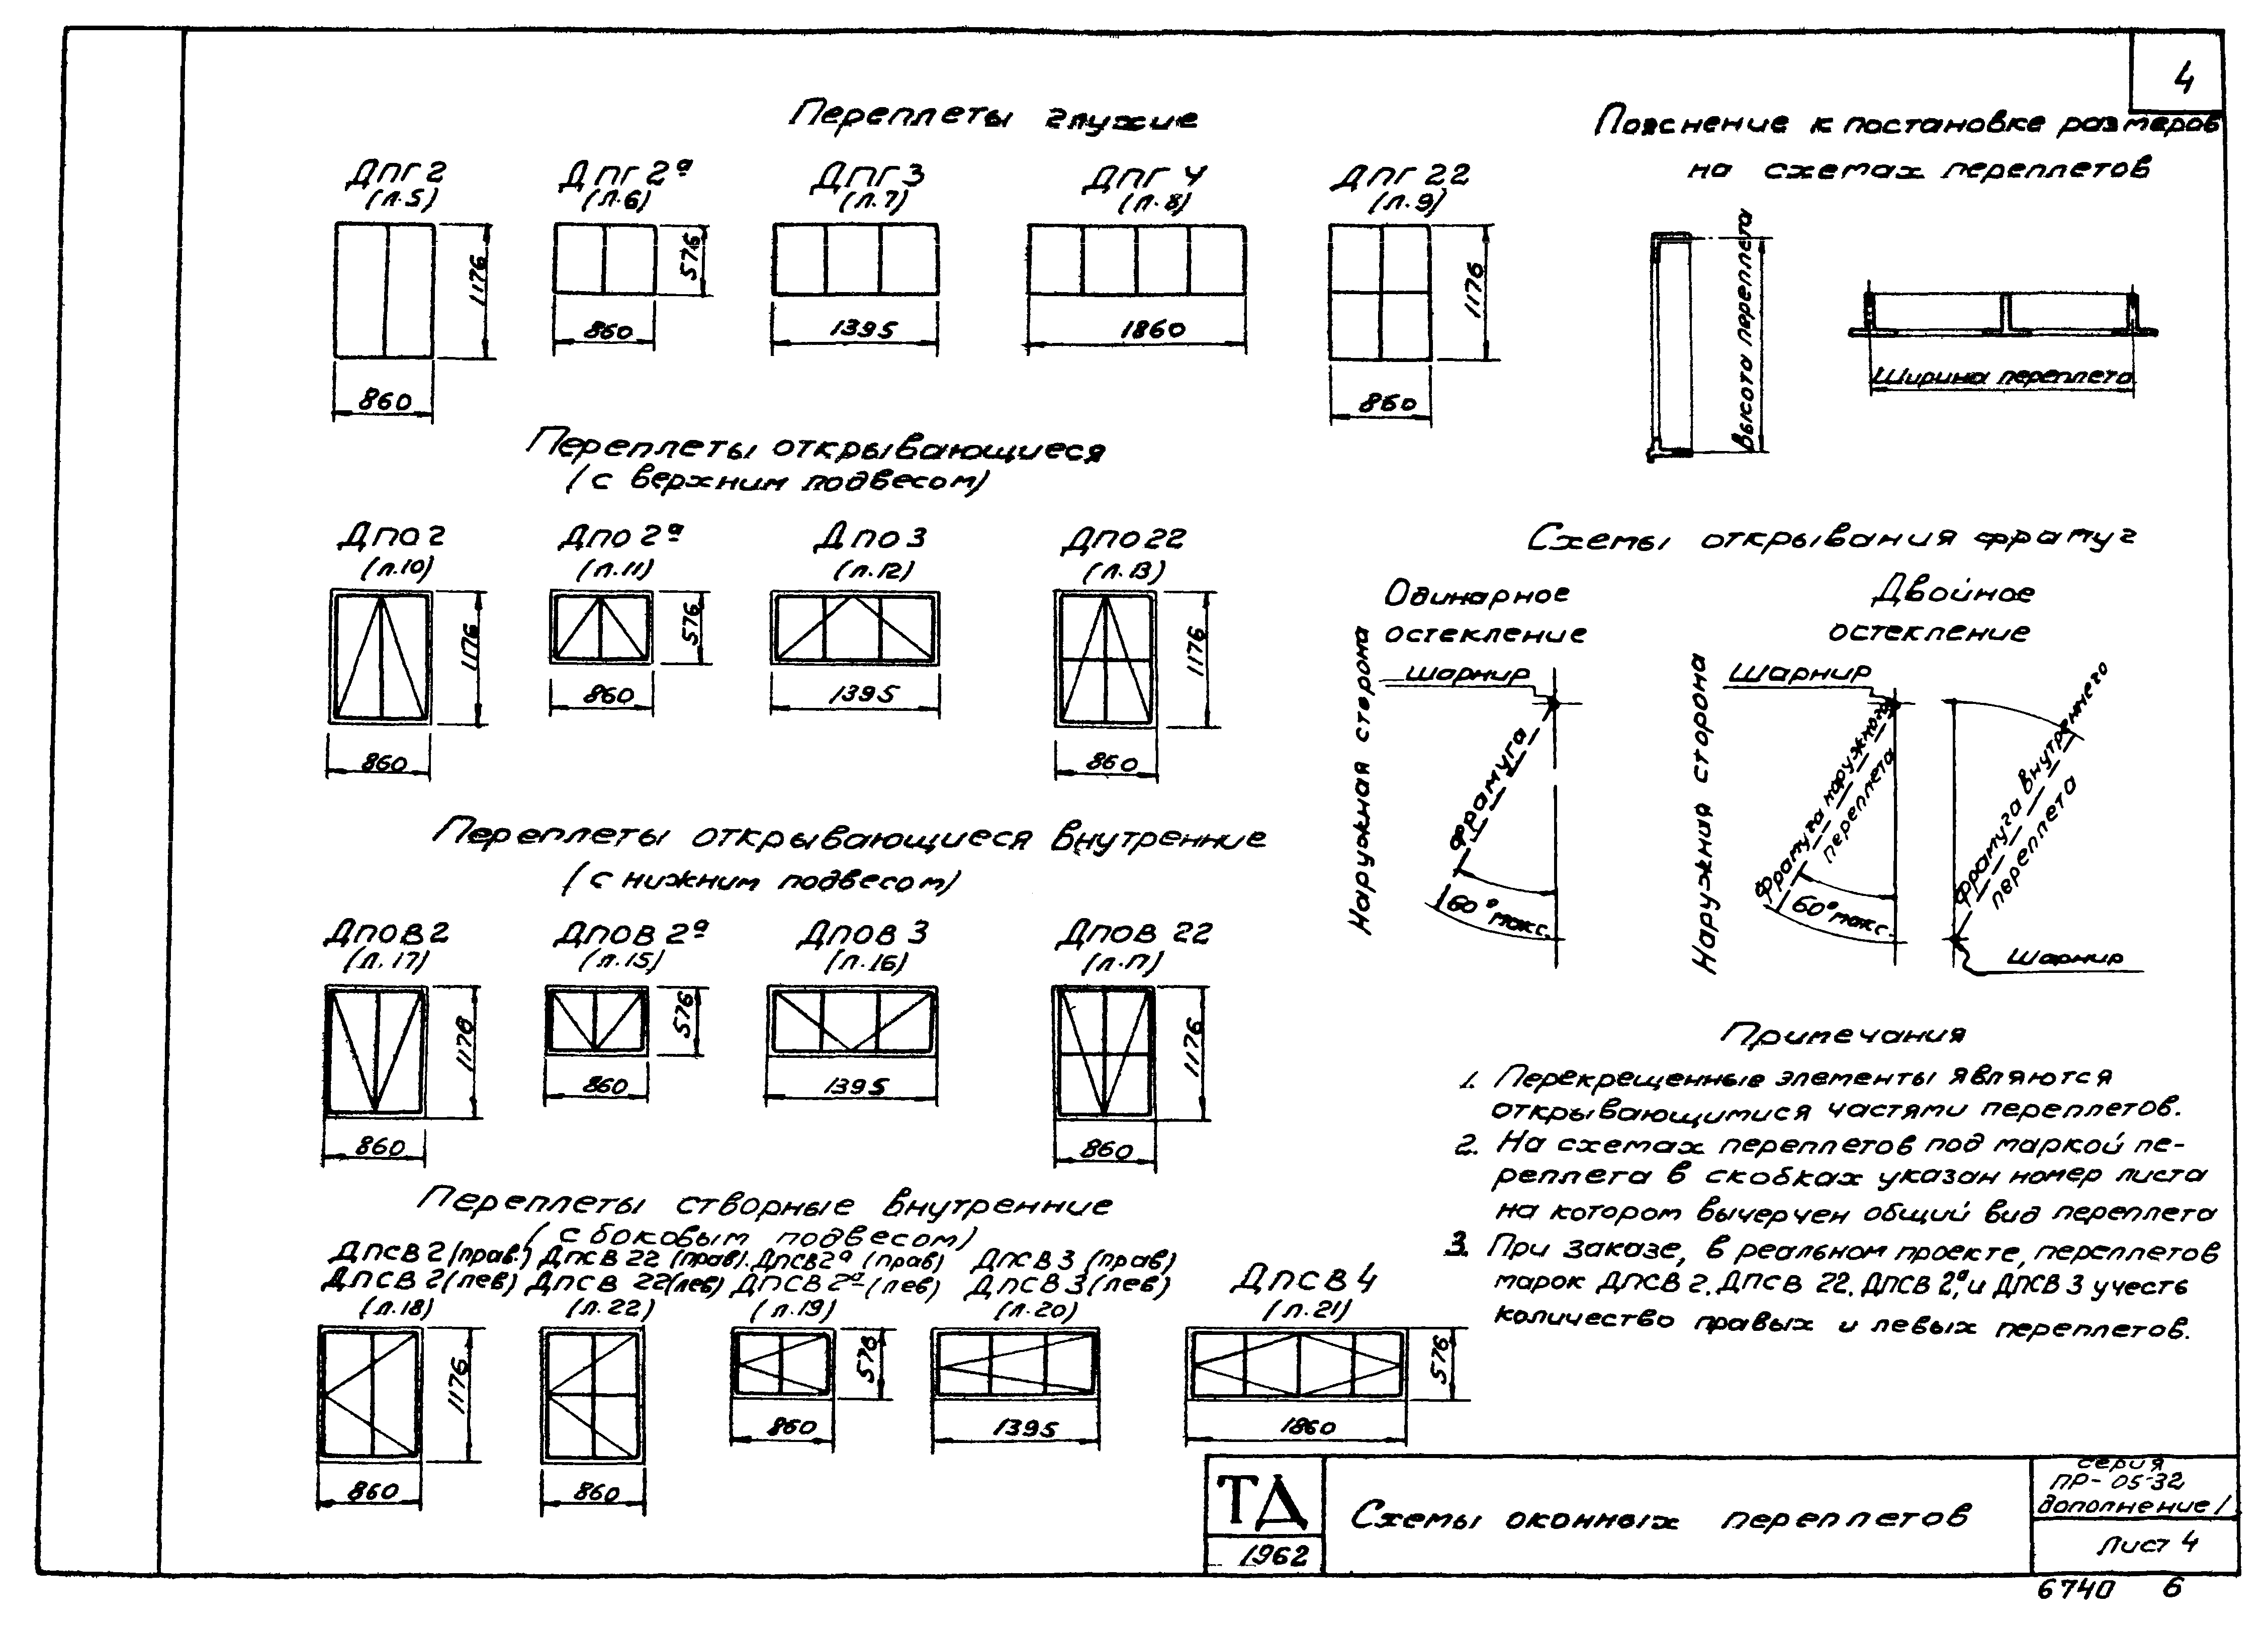 4
Переплеты глухие
ДПГ 2
(л.5)
1176
860
ДПГ 2а
(л.6)
576
860
ДПГ 3
(л.7)
1395
ДПГ 4
(л.8)
1860
ДПГ 22
(л.9)
1176
860
Пояснение к постановке размеров
на схемах переплетов
Высота переплета
Ширина переплета
Переплеты открывающиеся
(с верхним подвесом)
ДПО 2
(л.10)
1176
860
ДПО 2а
(л.11)
576
860
ДПО 3
(л.12)
1395
ДПО 22
(л.13)
1176
860
Схемы открывания фрамуг
Одинарное
остекление
Наружная сторона
Шарнир
Фрамуга
60° макс.
Двойное
остекление
Наружная сторона
Шарнир
Фрамуга наружного
переплета
60° макс.
Фрамуга внутреннего
переплета
Шарнир
Переплеты открывающиеся внутренние
(с нижним подвесом)
ДПОВ 2
(л.17)
1176
860
ДПОВ 2а
(л.15)
576
860
ДПОВ 3
(л.16)
1395
ДПОВ 22
(л.П)
1176
860
Переплеты створные внутренние
(с боковым подвесом)
ДПСВ 2 (прав.) ДПСВ 22 (прав). ДПСВ 2а (прав) ДПСВ 3 (прав)
ДПСВ 2 (лев) ДПСВ 22 (лев) ДПСВ 2а (лев) ДПСВ 3 (лев)
(л.18) (л.22) (л.19) (л.20)
1176
860
860
576
860
1395
ДПСВ 4
(л.21)
576
1860
Примечания
1. Перекрещенные элементы являются
открывающимися частями переплетов.
2. На схемах переплетов под маркой пе-
реплета в скобках указан номер листа
на котором вычерчен общий вид переплета
3. При заказе, в реальном проекте, переплетов
марок ДПСВ 2. ДПСВ 22. ДПСВ 2а, и ДПСВ 3 учесть
количество правых и левых переплетов.
ТД
1962
Схемы оконных переплетов
серия
ПР-05-32
дополнение 1
Лист 4
6740 6